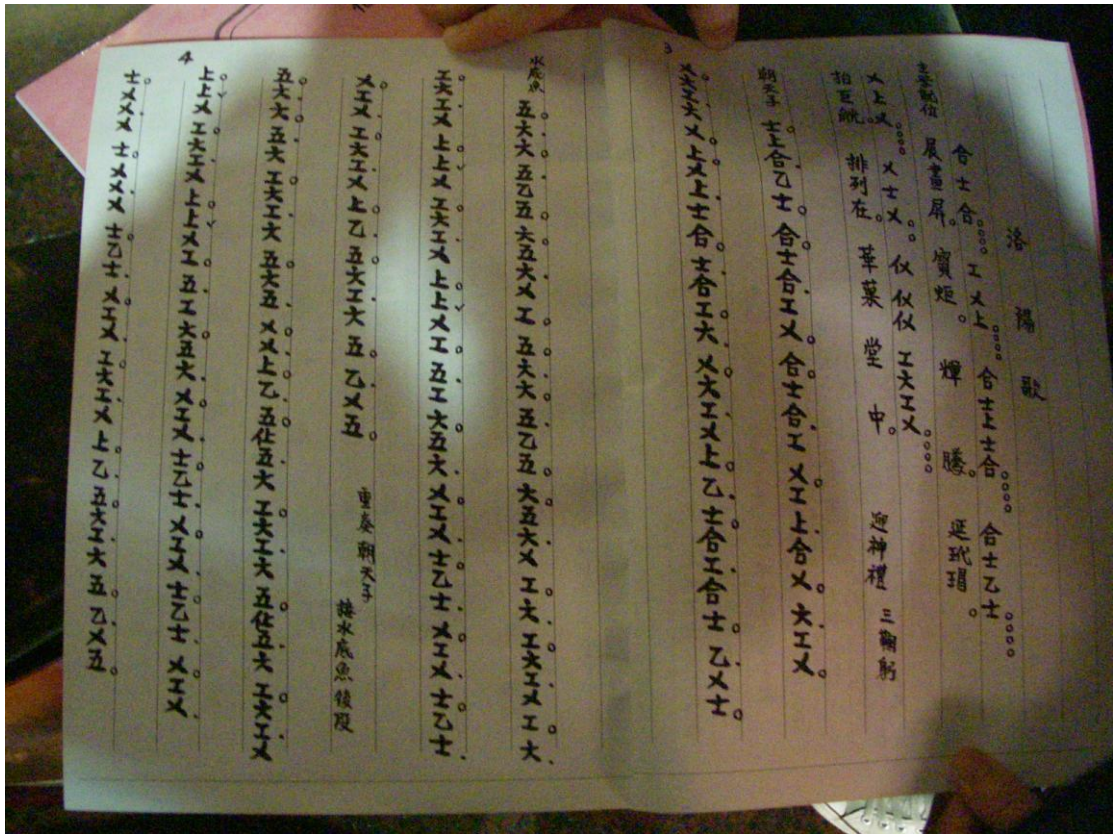 3
洛陽歌
合士合。。。。工乂上。。。。合士上士合。。。。合士乙士。。。。
主祭就位 展畫屏。寶炬。輝騰。延玳瑁。
乂上乂。。。乂士乂。。仪仪仪工大工乂。。。。
排列在。華菓堂中。迎神禮 三鞠躬
朝天子 士上合乙士 合士合工乂 合士合工 乂工上合乂 大工乂
乂大大乂上乂上士合 士合工大 乂大工乂上乙 士合工合士 乙乂士
4
水底魚 五大大 五乙五 大五大乂 工 五大大 五乙五 大五大乂 工大 工大工乂 工大
工大工乂 上上乂 工大工乂 上上乂工 五工 大五大 乂工乂 士乙士 乂工乂 士乙士
乂工乂 工大工乂 上乙 五大工大 五 乙乂五 重奏 朝天子 接水底魚後段
五大大 五大 工大工大 五大五 乂乂上乙 五仩五大 工大工大 五仩五大 工大工乂
上上乂 工大工乂 上上乂工 五工 大五大 乂工乂 士乙士 乂工乂 士乙士 乂工乂
士乂乂 士乂乂乂 士乙士 乂工乂 工大工乂 上乙 五大工大 五 乙乂五